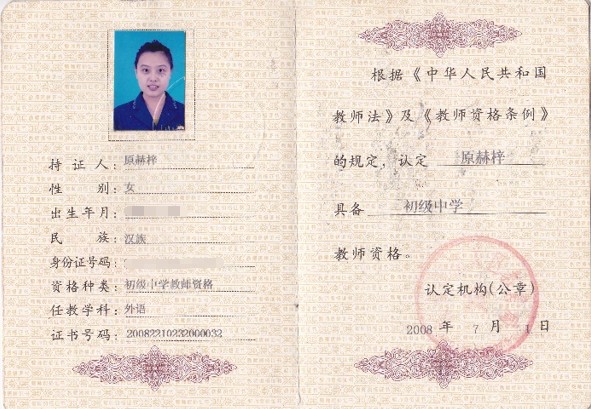 持证人：原赫梓
性别：女
出生年月：
民族：汉族
身份证号码：
资格种类：初级中学教师资格
任教学科：外语
证书号码：20082210232000032
根据《中华人民共和国
教师法》及《教师资格条例》
的规定，认定 原赫梓
具备 初级中学
教师资格。
认定机构(公章)
2008 年 7 月 1 日